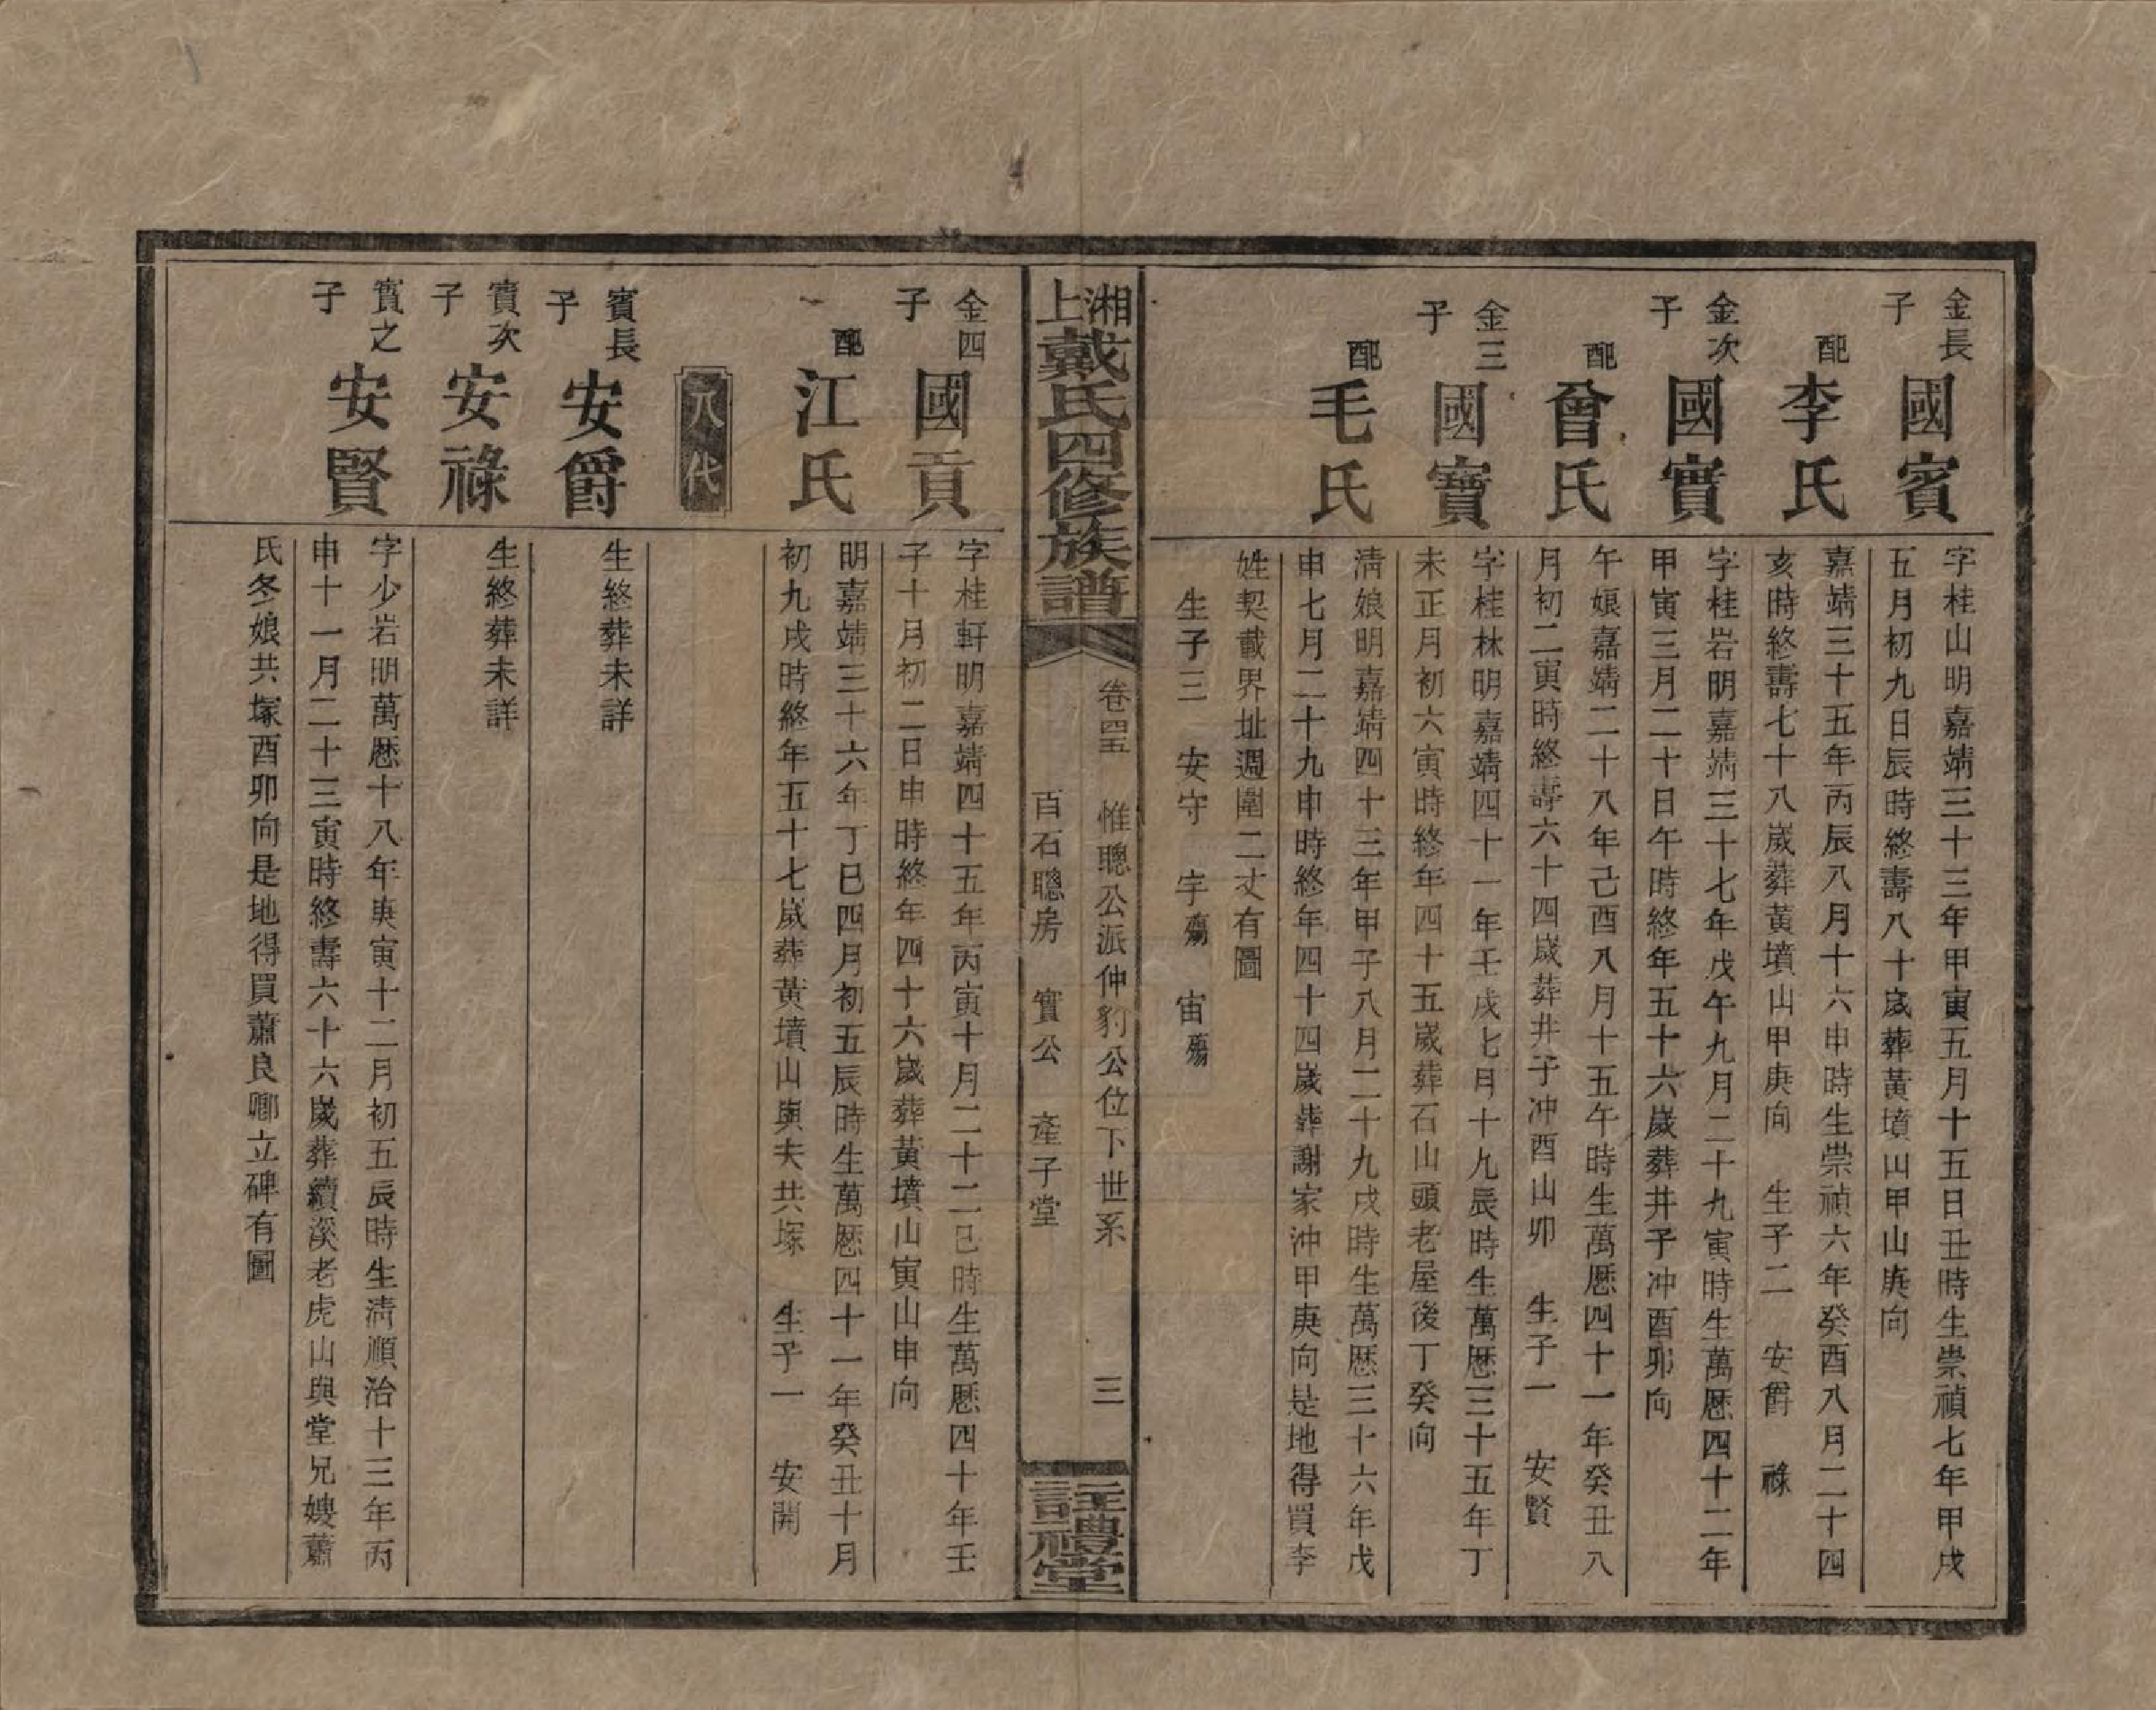 金長子
國賓
字桂山明嘉靖三十三年甲寅五月十五日丑時生崇禎七年甲戌
五月初九日辰時終壽八十歲葬黃墳山甲山庚向
配
李氏
嘉靖三十五年丙辰八月十六申時生崇禎六年癸酉八月二十四
亥時終壽七十八歲葬黃墳山甲庚向　生子二　安爵　祿
金次子
國實
字桂岩明嘉靖三十七年戊午九月二十九寅時生萬歷四十二年
甲寅三月二十日午時終年五十六歲葬井子冲酉卯向
配
曾氏
午娘嘉靖二十八年己酉八月十五午時生萬歷四十一年癸丑八
月初二寅時終壽六十四歲葬井子冲酉山卯　生子一　安賢
金三子
國寶
字桂林明嘉靖四十一年壬戌七月十九辰時生萬歷三十五年丁
未正月初六寅時終年四十五歲葬石山頭老屋後丁癸向
配
毛氏
清娘明嘉靖四十三年甲子八月二十九戌時生萬歷三十六年戊
申七月二十九申時終年四十四歲葬謝家沖甲庚向是地得買李
姓契載界址週圍二丈有圖
生子三　安守　字殤　宙殤
湘上戴氏四修族譜
卷四五　惟聰公派仲豹公位下世系　三
百石聰房　實公　產子堂
註禮堂
金四子
國貢
字桂軒明嘉靖四十五年丙寅十月二十二巳時生萬歷四十年壬
子十月初二日申時終年四十六歲葬黃墳山寅山申向
配
江氏
明嘉靖三十六年丁巳四月初五辰時生萬歷四十一年癸丑十月
初九戌時終年五十七歲葬黃墳山與夫共塚　生子一　安開
八代
賓長子
安爵
生終葬未詳
賓次子
安祿
生終葬未詳
實之子
安賢
字少岩明萬歷十八年庚寅十二月初五辰時生清順治十三年丙
申十一月二十三寅時終壽六十六歲葬續溪老虎山與堂兄嫂蕭
氏冬娘共塚酉卯向是地得買蕭良卿立碑有圖